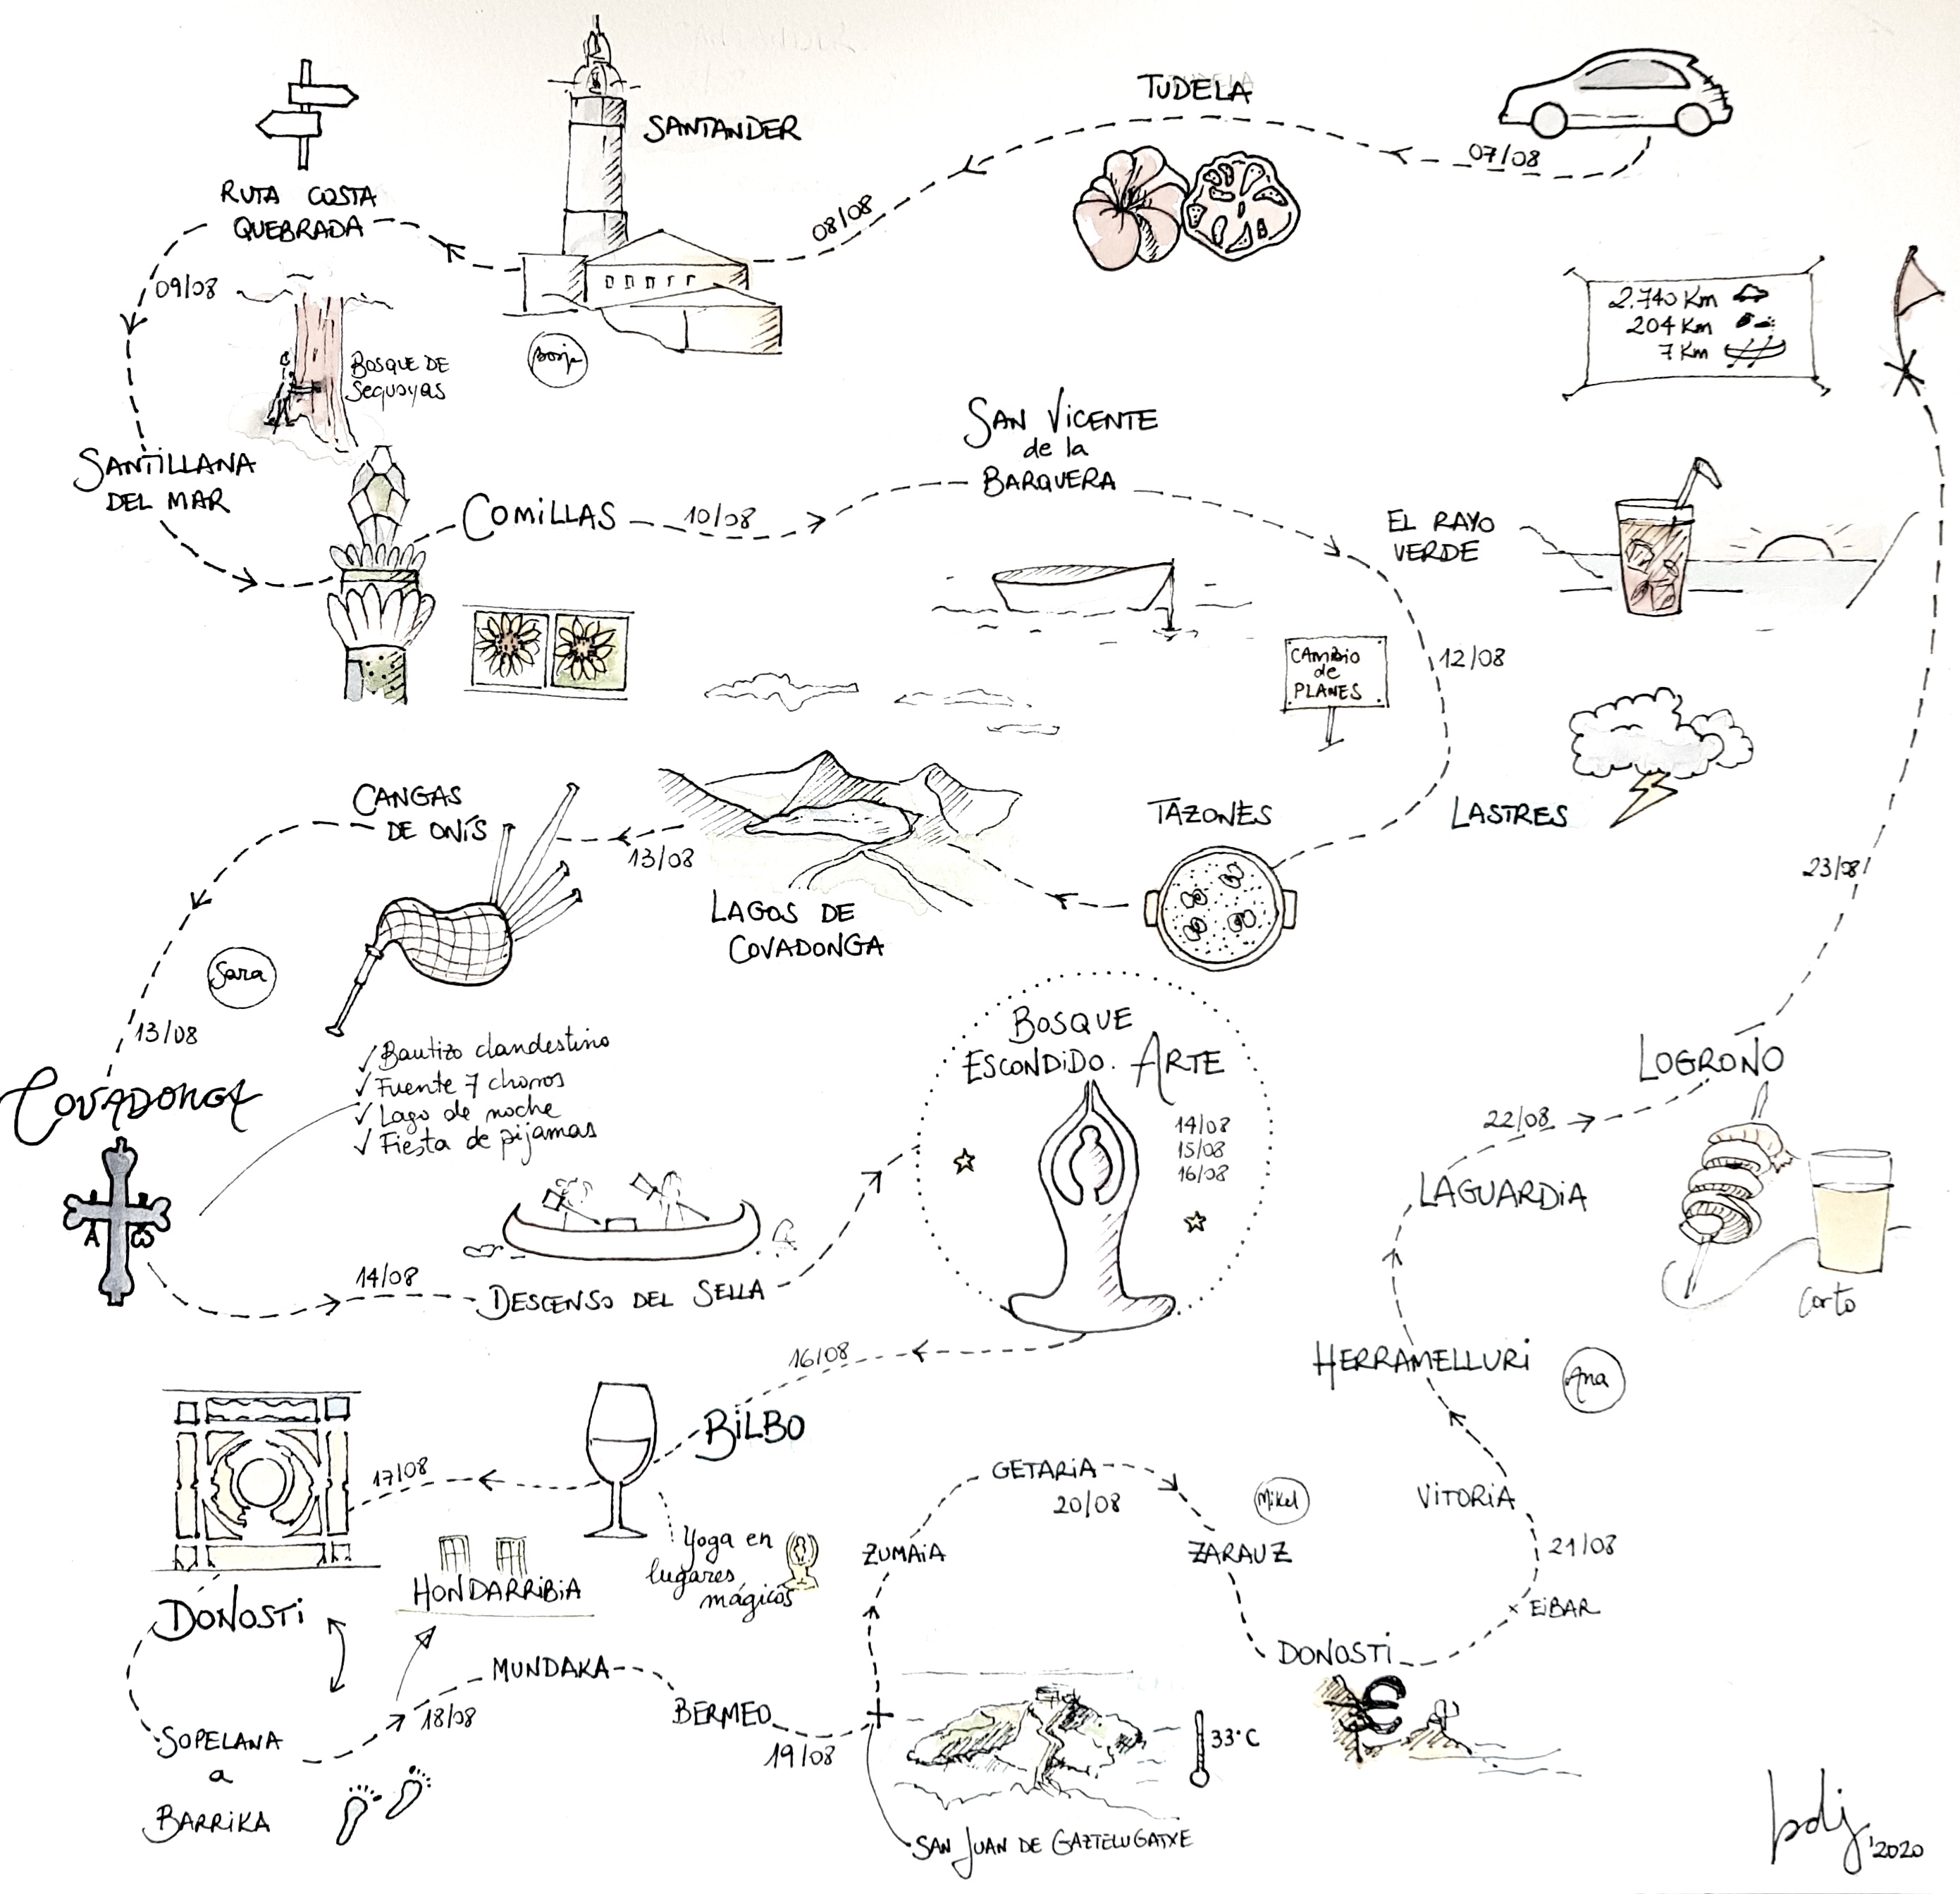 TUDELA
07/08
08/08
SANTANDER
Borja
RUTA COSTA
QUEBRADA
09/08
BOSQUE DE
Sequoyas
SANTILLANA
DEL MAR
COMILLAS
10/08
SAN VICENTE
de la
BARQUERA
2.740 Km
204 Km
7 Km
EL RAYO
VERDE
12/08
CAMBIO
de
PLANES
LASTRES
TAZONES
LAGOS DE
COVADONGA
13/08
CANGAS
DE ONÍS
Sara
13/08
COVADONGA
A ω
✓ Bautizo clandestino
✓ Fuente 7 chorros
✓ Lago de noche
✓ Fiesta de pijamas
14/08
DESCENSO DEL SELLA
BOSQUE
ESCONDIDO. ARTE
14/08
15/08
16/08
16/08
BILBO
Yoga en
lugares
mágicos
17/08
DONOSTI
HONDARRIBIA
SOPELANA
a
BARRIKA
18/08
MUNDAKA
BERMEO
19/08
SAN JUAN DE GAZTELUGATXE
33°C
ZUMAIA
GETARIA
20/08
Mikel
ZARAUZ
DONOSTI
EIBAR
21/08
VITORIA
HERRAMELLURI
Ana
LAGUARDIA
22/08
LOGROÑO
Corto
23/08
bdj '2020